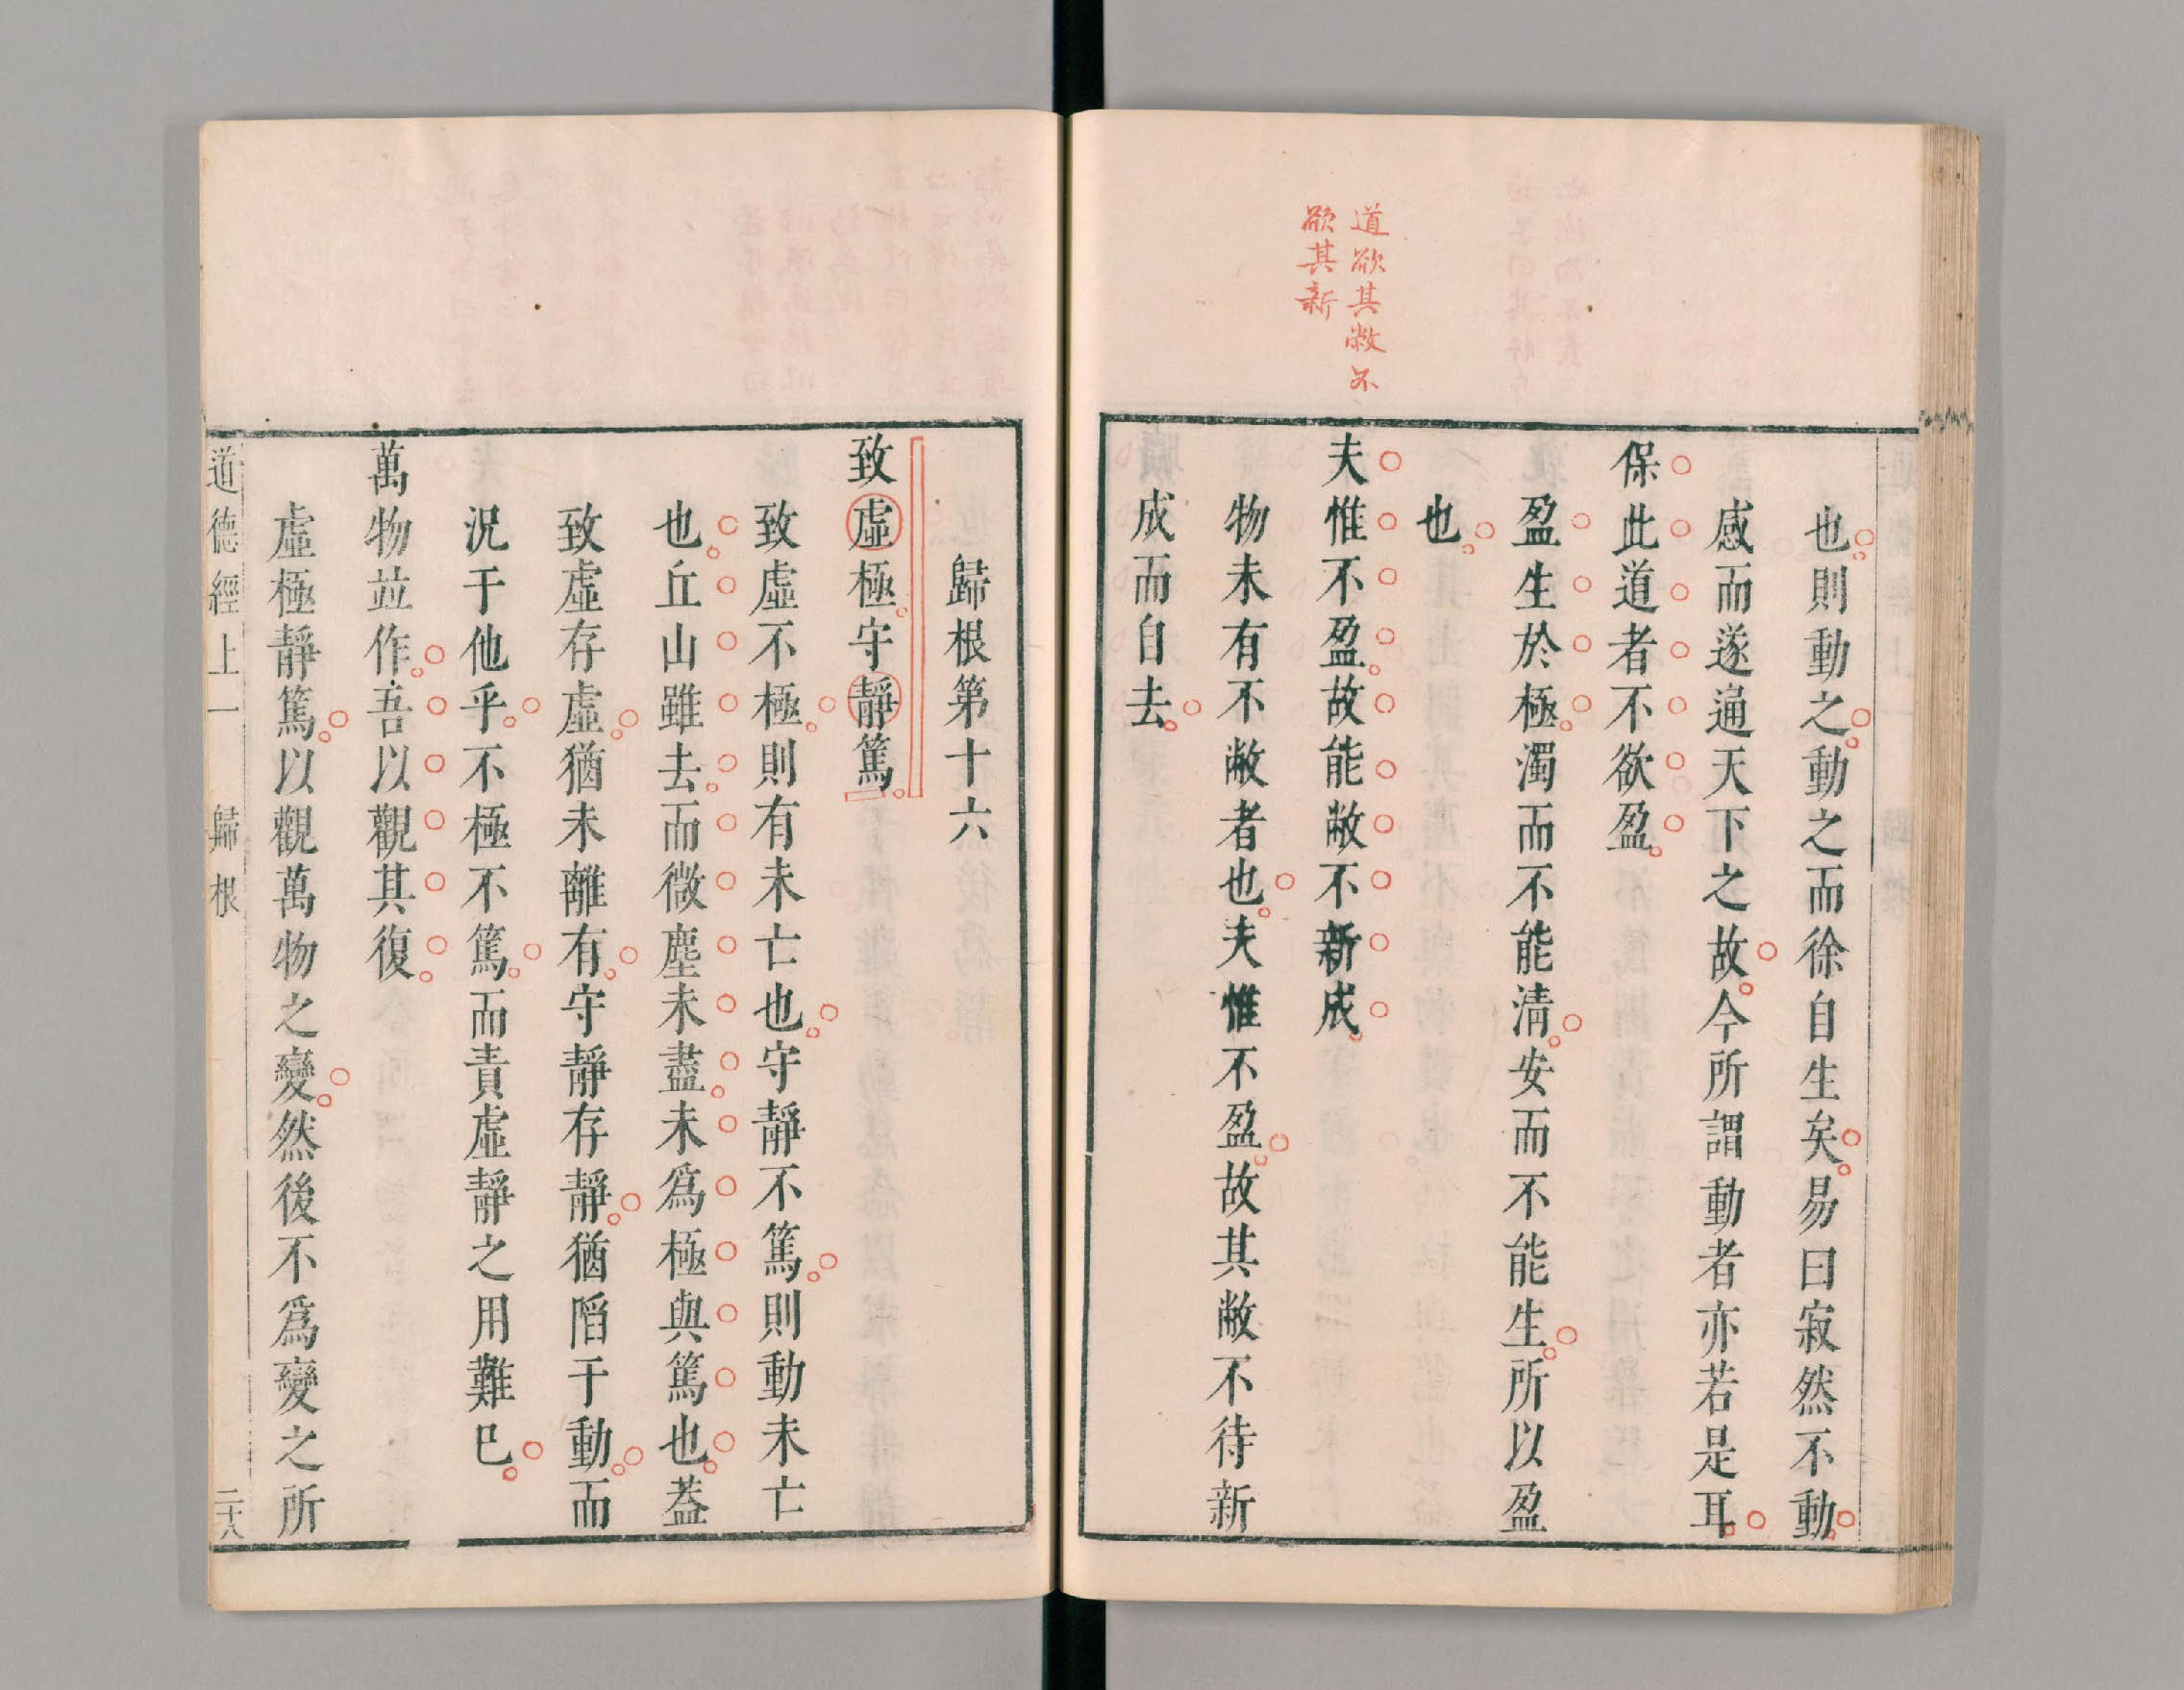 道欲其敝不
欲其新
也則動之動之而徐自生矣易曰寂然不動
感而遂通天下之故今所謂動者亦若是耳
保此道者不欲盈
盈生於極濁而不能清安而不能生所以盈
也
夫惟不盈故能敝不新成
物未有不敝者也夫惟不盈故其敝不待新
成而自去
歸根第十六
致虛極守靜篤
致虛不極則有未亡也守靜不篤則動未亡
也丘山雖去而微塵未盡未爲極與篤也葢
致虛存虛猶未離有守靜存靜猶陷于動而
況于他乎不極不篤而責虛靜之用難巳
萬物竝作吾以觀其復
虛極靜篤以觀萬物之變然後不爲變之所
道德經上一 歸根 二十八